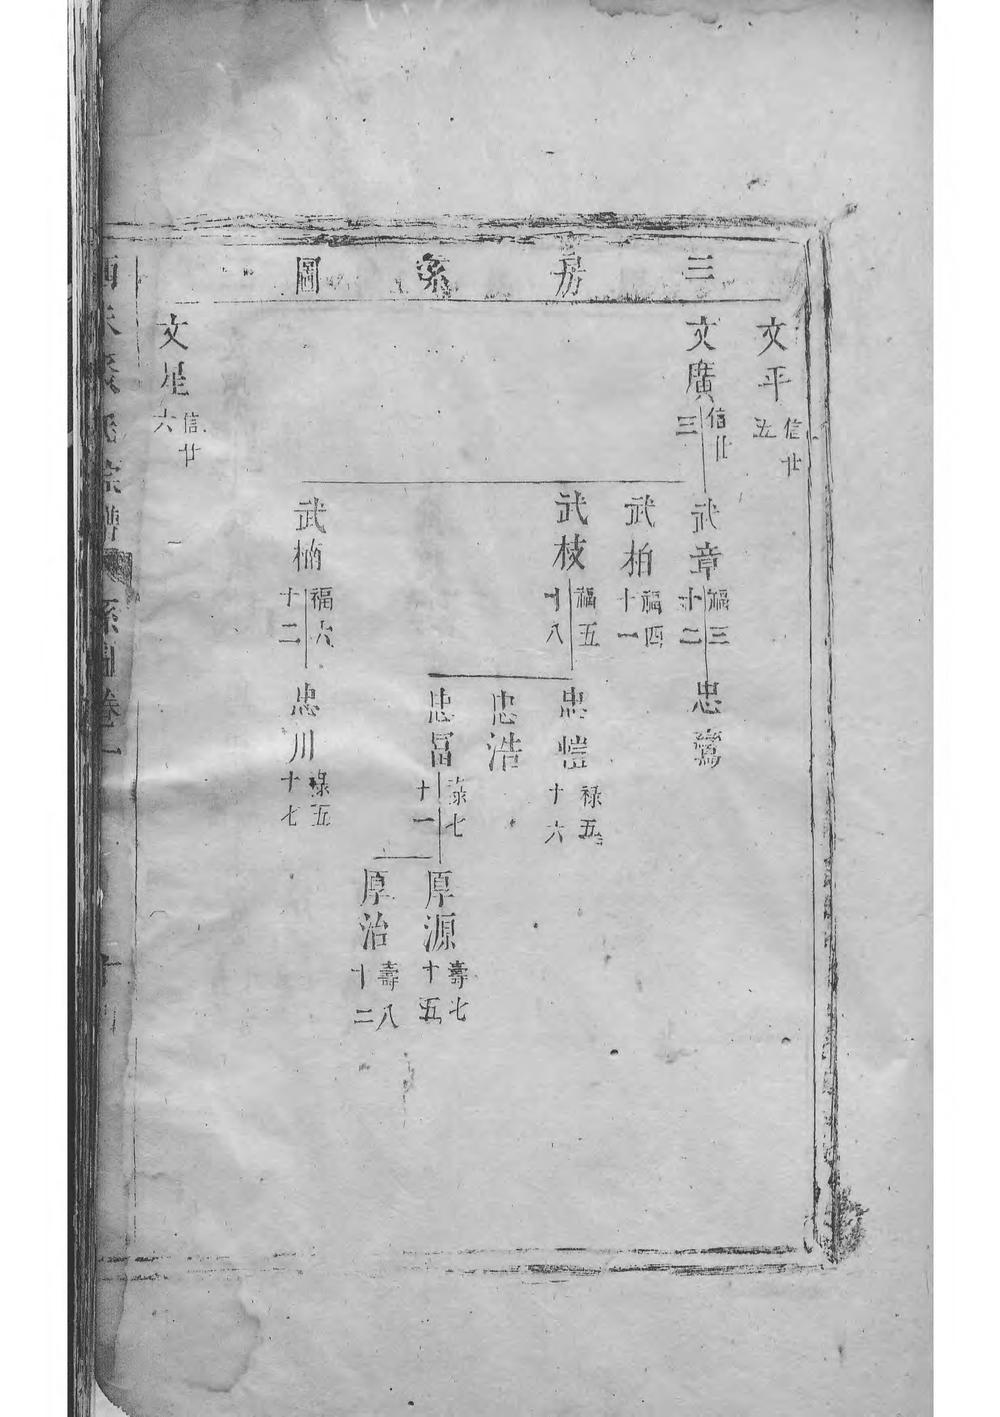 三房系圖
文平 信廿五
文廣 信廿三
武章 福三十二
忠鷟
武柏 福四十一
武枝 福五十八
忠愷 祿五十六
忠浩
忠冨 祿七十一
厚源 壽七十五
厚治 壽八十二
武楠 福六十二
忠川 祿五十七
文星 信廿六
宗譜 系圖卷一